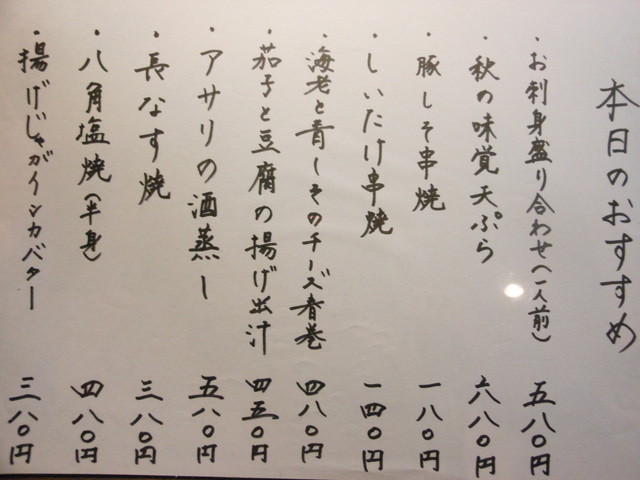 本日のおすすめ
・お刺身盛り合わせ(一人前) 五八〇円
・秋の味覚天ぷら 六八〇円
・豚しそ串焼 一八〇円
・しいたけ串焼 一四〇円
・海老と青しそのチーズ春巻 四八〇円
・茄子と豆腐の揚げ出汁 四五〇円
・アサリの酒蒸し 五八〇円
・長なす焼 三八〇円
・八角塩焼(半身) 四八〇円
・揚げじゃがインカバター 三八〇円